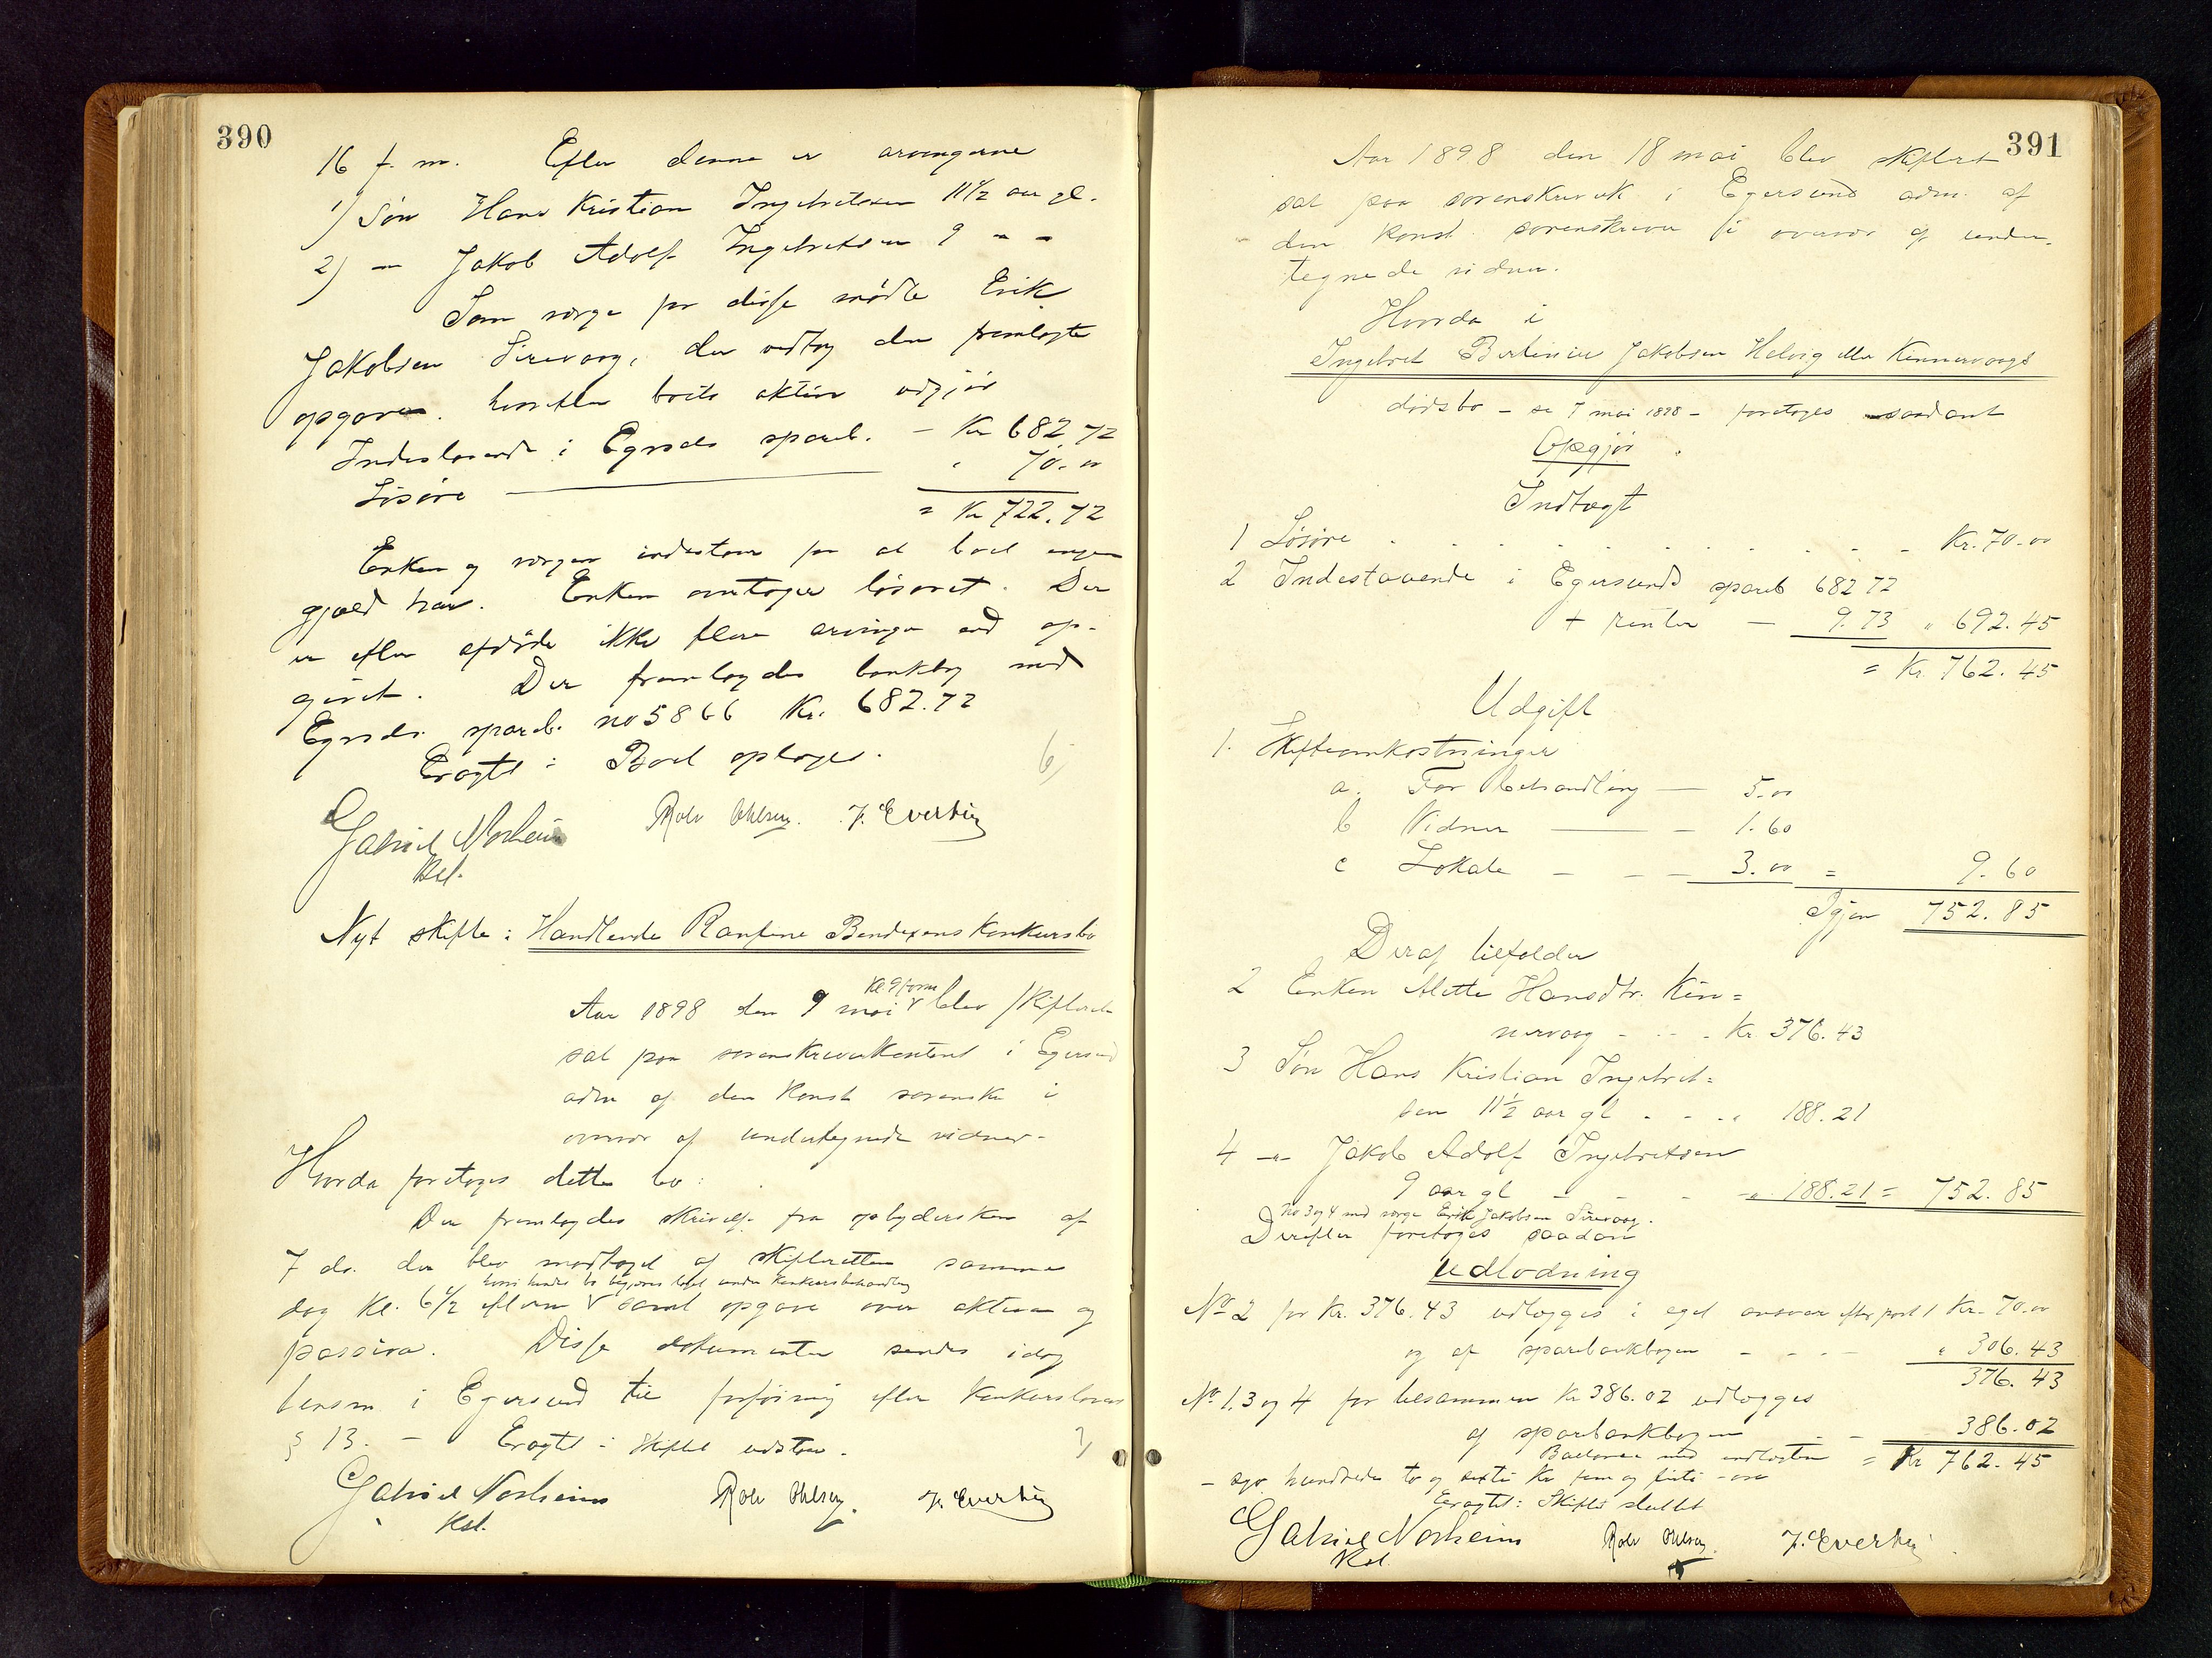 390
16 f. m. Efter denne er arvingerne
1) Søn Hans Kristian Ingebretsen 11 1/2 aar gl.
2) — Jakob Adolf Ingebretsen 9 " "
Som verge for disse mødte Erik
Jakobsen Sirevaag, der vedtog den fremlagte
opgave. hvorefter boets aktiva udgjør
Indestaaende i Egersds spareb. — Kr 682,72
Løsøre — " 70.00
= Kr 722.72
Enken og vergen indestaar for at boet ingen
gjæld har. Enken overtager løsøret. Der
er efter afdøde ikke flere arvinger end op-
givet. Der fremlagdes bankbog med
Egersds. spareb. no 5866 Kr. 682.72
Eragtet: Boet optages.
6)
Gabriel Norheim Rolv Ohlsen. J. Evertsen
Kst.
Nyt skifte: Handlende Rasmine Bendixens konkursbo
Kl. 9 form
Aar 1898 den 9 mai v blev skifteret
sat paa sorenskriverkontoret i Egersund
adm af den konst sorenskr i
overvær af undertegnede vidner.
Hvorda foretoges dette bo:
Der fremlagdes skrivelse fra opbydersken af
7 ds. der blev modtaget af skifteretten samme
hvori hendes bo begjæres taget under konkursbehandling
dag kl. 6 1/2 efterm v samt opgave over aktiva og
passiva. Disse dokumenter sendes idag
lensm. i Egersund til forføining efter konkurslovens
§ 13. — Eragtet: Skiftet udstaar.
7)
Gabriel Norheim Rolv Ohlsen. J. Evertsen
Kst.
391
Aar 1898 den 18 mai blev skifteret
sat paa sorenskrivek i Egersund adm. af
den konst. sorenskriver i overvær af under-
tegnede vidner.
Hvorda i
Ingebret Bertinius Jakobsen Helvig eller Kinnervaags
dødsbo — se 7 mai 1898 — foretoges saadant
Opgjør.
Indtægt
1 Løsøre . . . . . . . . . . Kr. 70.00
2 Indestaaende i Egersunds spareb 682 72
+ renter — 9.73 " 692.45
= Kr 762.45
Udgift
1. Skifteomkostninger
a. For behandling — 5.00
b Vidner — 1.60
c Lokale — 3.00 = 9.60
Igjen 752.85
Deraf tilfalder
2 Enken Mette Hansdtr. Kin=
nervaag - - - Kr 376.43
3 Søn Hans Kristian Ingebret=
sen 11 1/2 aar gl . . . " 188.21
4 -"- Jakob Adolf Ingebretsen
9 aar gl - - - " 188.21 = 752.85
No 3 og 4 med verge Erik Jakobsen Sirevaag.
Derefter foretoges saadan
Udlodning
No 2 for Kr. 376.43 udlægges i eget ansvar efter post 1 Kr. 70.00
og af sparebankbogen - - - - " 306.43
376.43
No. 1, 3 og 4 for tilsammen Kr 386.02 udlægges
af sparebankbogen - - 386.02
Balance med indtægten = Kr 762.45
— syv hundrede to og sexti Kr fem og firti — øre
Eragtet: Skiftet sluttet
Gabriel Norheim Rolv Ohlsen. J. Evertsen
Kst.